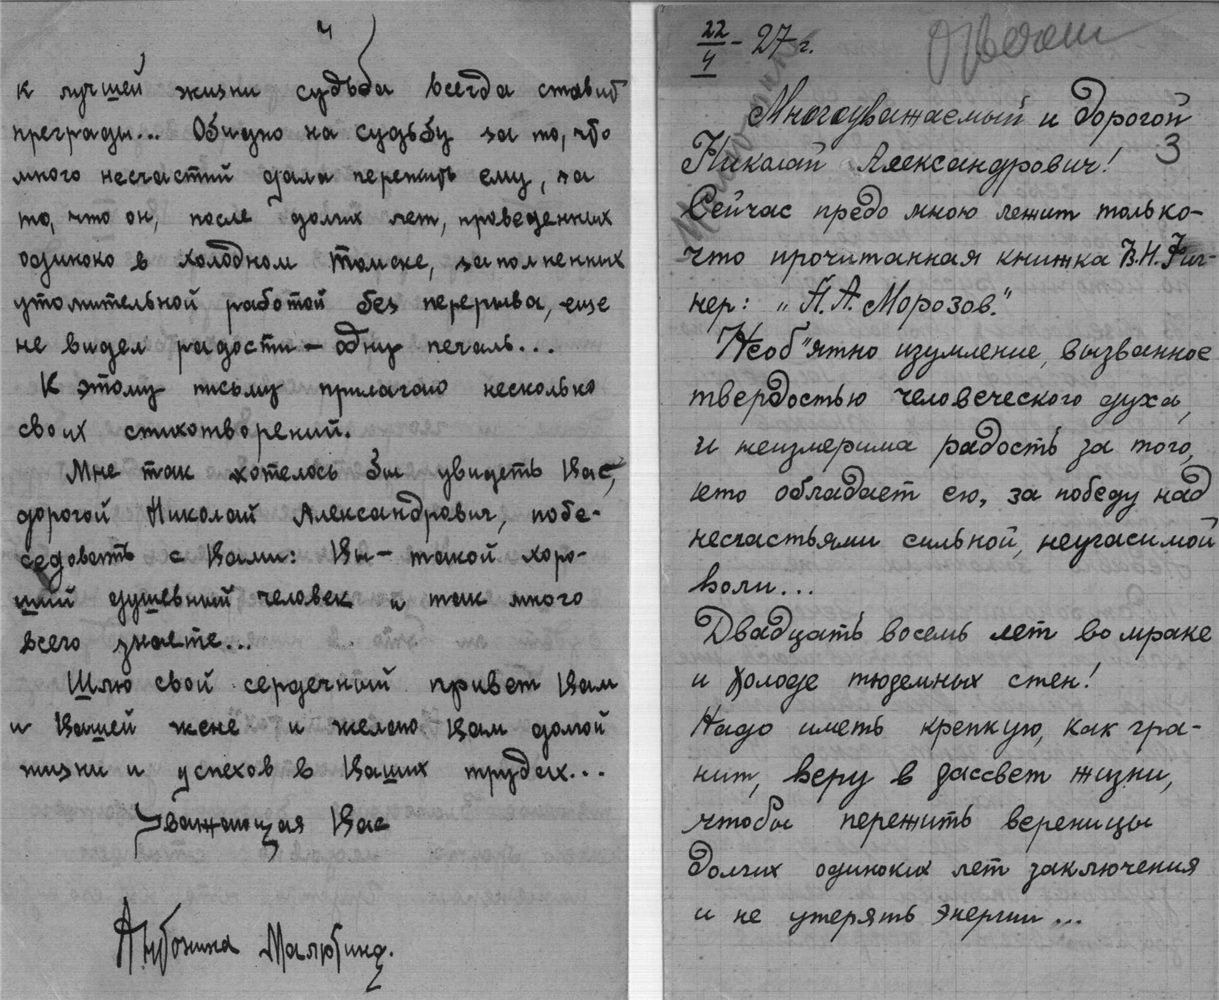 4
к лучшей жизни судьба всегда ставит
преграды... Обидно на судьбу за то, что
много несчастий дала пережить ему, за
то, что он, после долгих лет, проведенных
одиноко в холодном Томске, заполненных
утомительной работой без перерыва, еще
не видел радости — одну печаль...
К этому письму прилагаю несколько
своих стихотворений.
Мне так хотелось бы увидеть Вас,
дорогой Николай Александрович, побе-
седовать с Вами: Вы — такой хоро-
ший душевный человек и так много
всего знаете...
Шлю свой сердечный привет Вам
и Вашей жене и желаю Вам долгой
жизни и успехов в Ваших трудах...
Уважающая Вас
Антонина Малютина.
22/4 - 27 г.
Многоуважаемый и дорогой
Николай Александрович!
3
Сейчас предо мною лежит только-
что прочитанная книжка В.Н. Фиг-
нер: „Н.А. Морозов."
Необ"ятно изумление, вызванное
твердостью человеческого духа,
и неизмерима радость за того,
кто обладает ею, за победу над
несчастьями сильной, неугасимой
воли...
Двадцать восемь лет во мраке
и холоде тюремных стен!
Надо иметь крепкую, как гра-
нит, веру в рассвет жизни,
чтобы пережить вереницы
долгих одиноких лет заключения
и не утерять энергии...